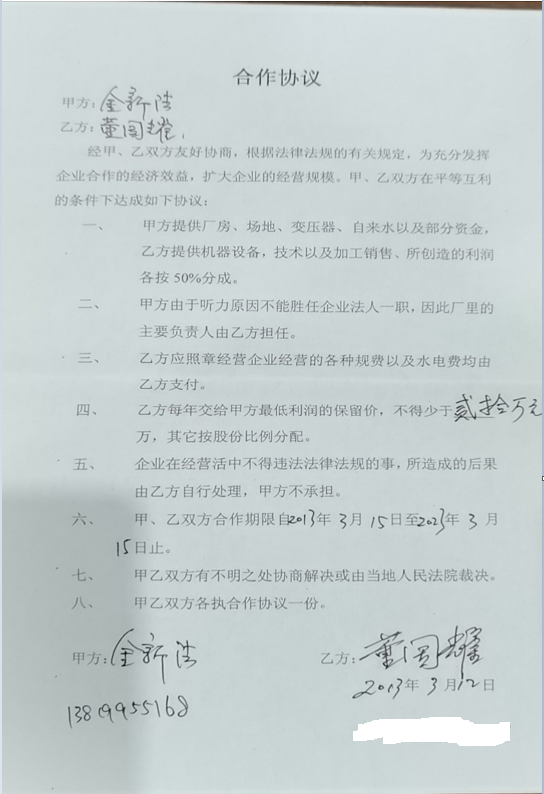 合作协议
甲方：金新浩
乙方：董国耀
经甲、乙双方友好协商，根据法律法规的有关规定，为充分发挥
企业合作的经济效益，扩大企业的经营规模。甲、乙双方在平等互利
的条件下达成如下协议：
一、 甲方提供厂房、场地、变压器、自来水以及部分资金，
乙方提供机器设备，技术以及加工销售、所创造的利润
各按 50%分成。
二、 甲方由于听力原因不能胜任企业法人一职，因此厂里的
主要负责人由乙方担任。
三、 乙方应照章经营企业经营的各种规费以及水电费均由
乙方支付。
四、 乙方每年交给甲方最低利润的保留价，不得少于贰拾万元
万，其它按股份比例分配。
五、 企业在经营活中不得违法法律法规的事，所造成的后果
由乙方自行处理，甲方不承担。
六、 甲、乙双方合作期限自2013年 3月 15日至2023年 3月
15日止。
七、 甲乙双方有不明之处协商解决或由当地人民法院裁决。
八、 甲乙双方各执合作协议一份。
甲方：金新浩 乙方：董国耀
2013年 3月12日
13819955168